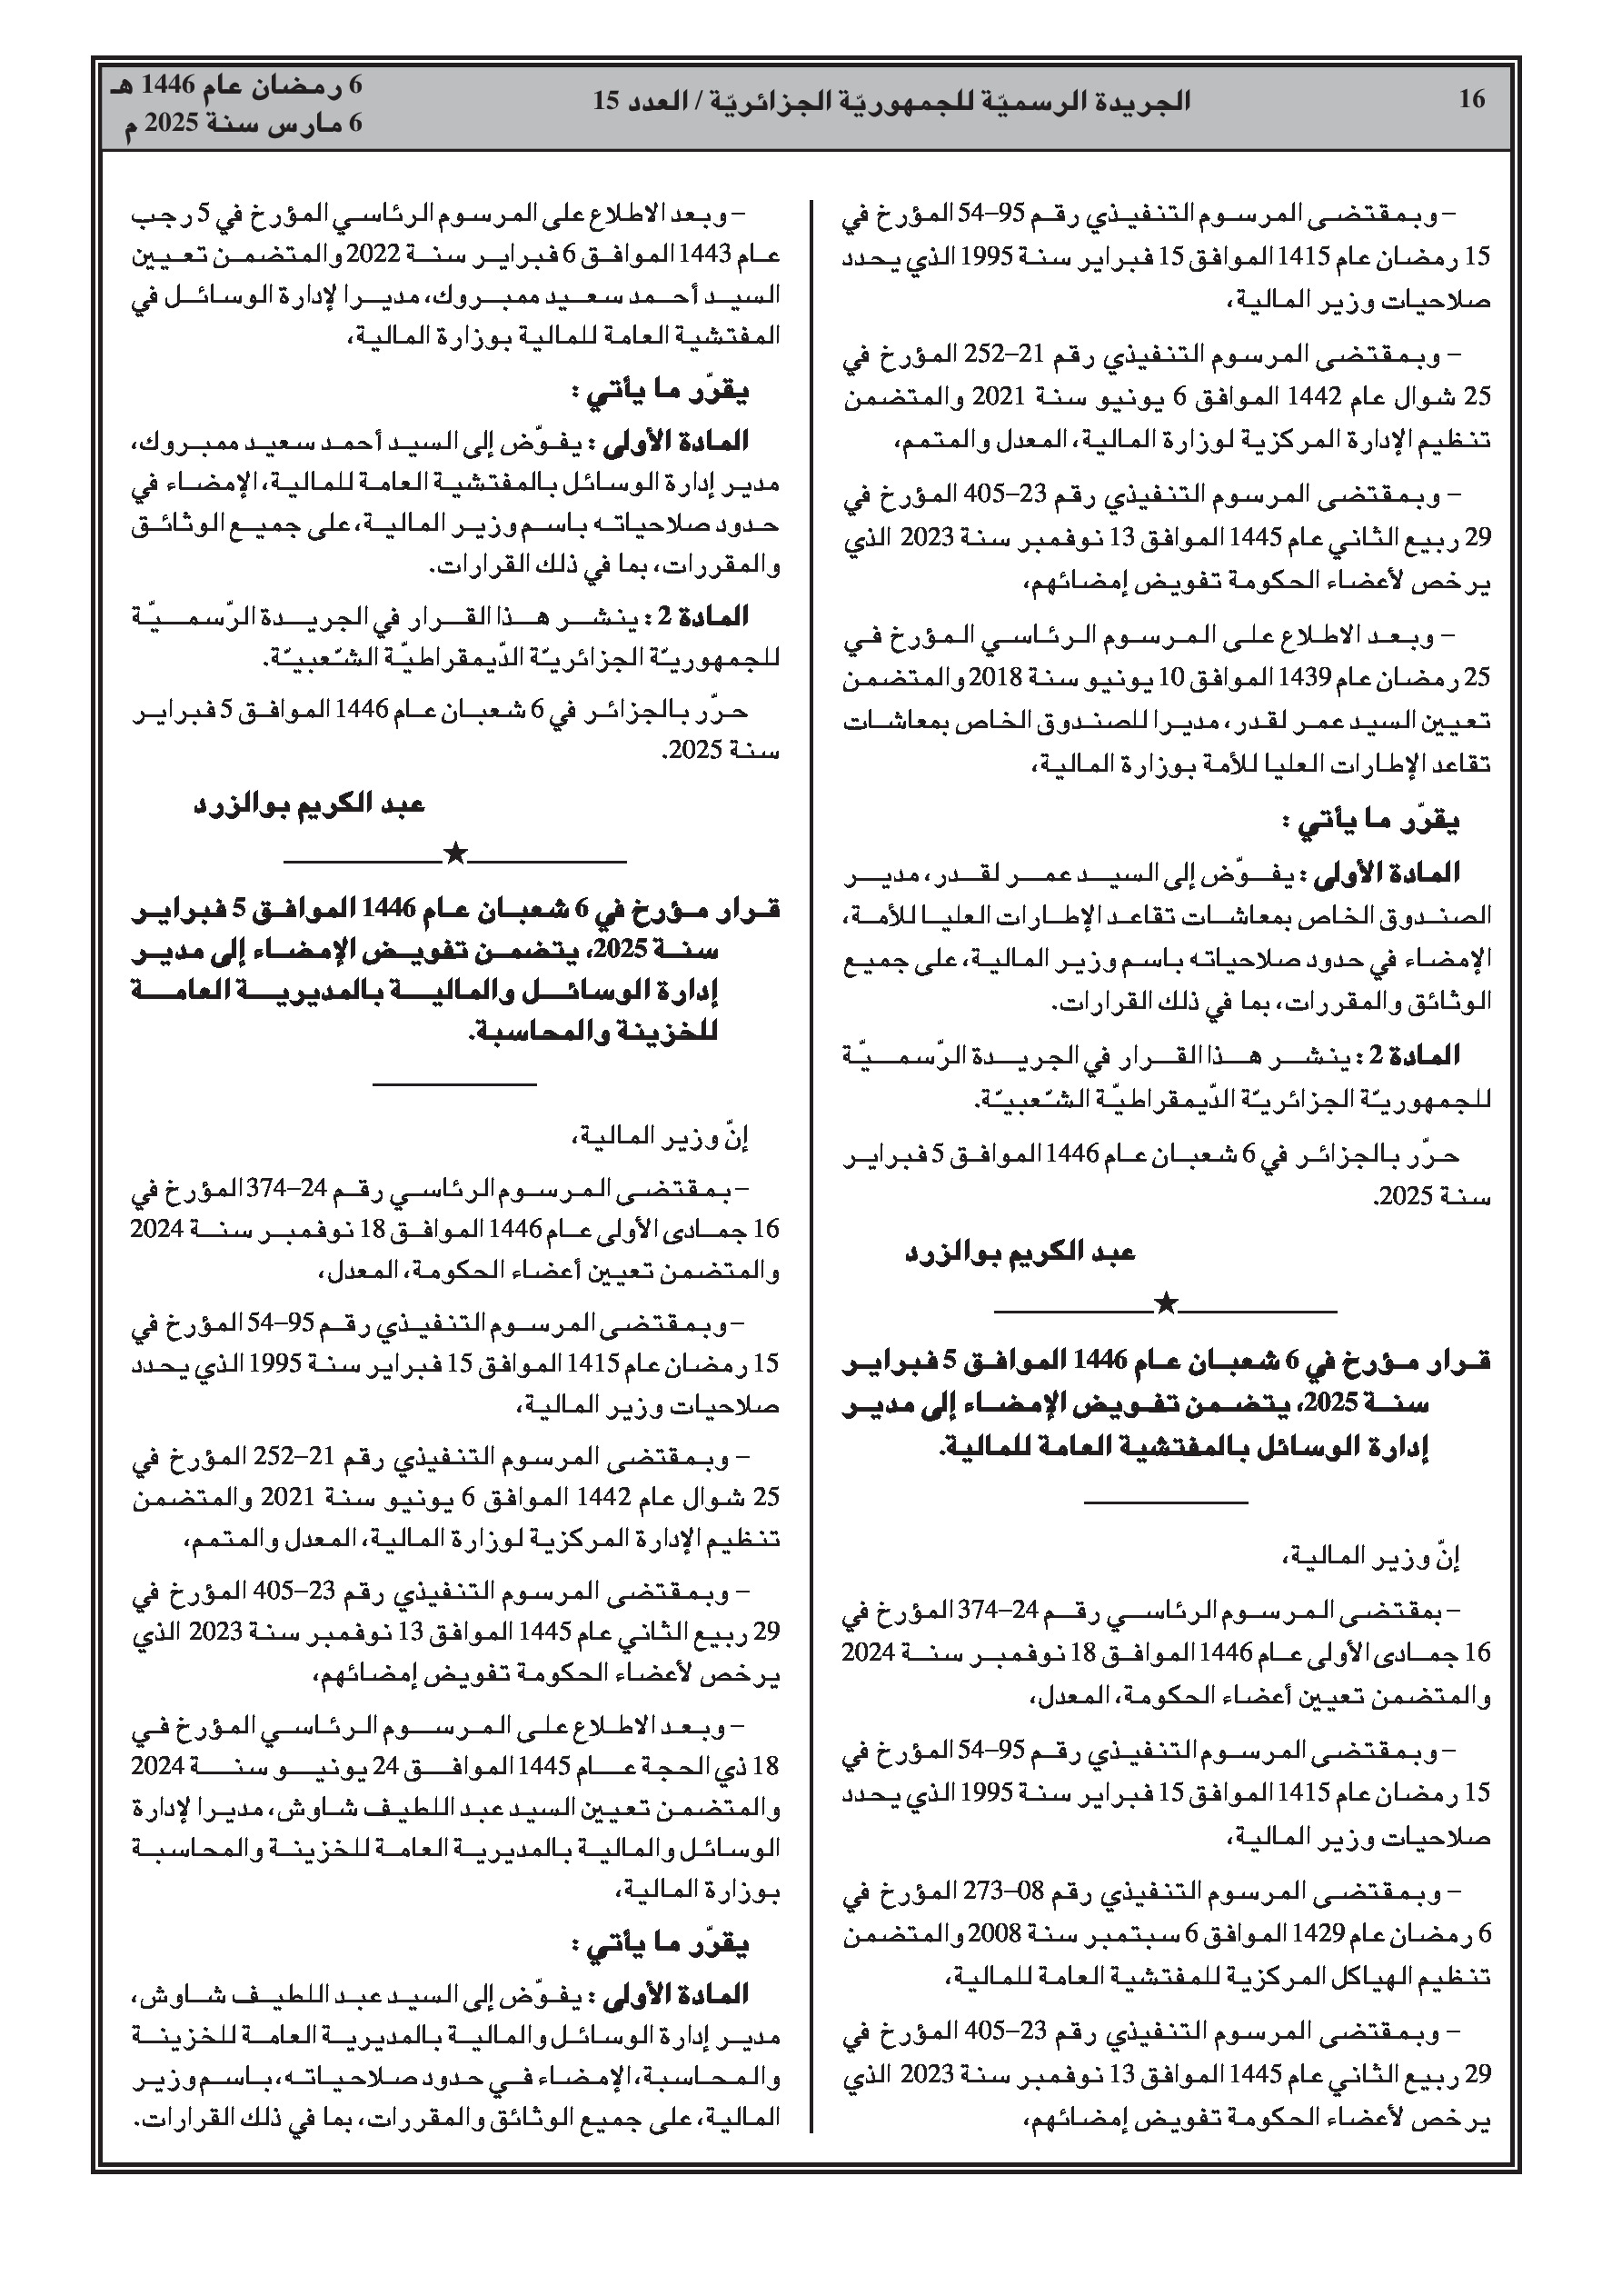 16
الجريدة الرسميّة للجمهوريّة الجزائريّة / العدد 15
6 رمضان عام 1446 هـ
6 مارس سنة 2025 م
– وبمقتضى المرسوم التنفيذي رقم 95–54 المؤرخ في
15 رمضان عام 1415 الموافق 15 فبراير سنة 1995 الذي يحدد
صلاحيات وزير المالية،
– وبمقتضى المرسوم التنفيذي رقم 21–252 المؤرخ في
25 شوال عام 1442 الموافق 6 يونيو سنة 2021 والمتضمن
تنظيم الإدارة المركزية لوزارة المالية، المعدل والمتمم،
– وبمقتضى المرسوم التنفيذي رقم 23–405 المؤرخ في
29 ربيع الثاني عام 1445 الموافق 13 نوفمبر سنة 2023 الذي
يرخص لأعضاء الحكومة تفويض إمضائهم،
– وبعد الاطلاع على المرسوم الرئاسي المؤرخ في
25 رمضان عام 1439 الموافق 10 يونيو سنة 2018 والمتضمن
تعيين السيد عمر لقدر، مديرا للصندوق الخاص بمعاشات
تقاعد الإطارات العليا للأمة بوزارة المالية،
يقرّر ما يأتي :
المادة الأولى : يفوّض إلى السيد عمر لقدر، مدير
الصندوق الخاص بمعاشات تقاعد الإطارات العليا للأمة،
الإمضاء في حدود صلاحياته باسم وزير المالية، على جميع
الوثائق والمقررات، بما في ذلك القرارات.
المادة 2 : ينشر هذا القرار في الجريدة الرّسميّة
للجمهوريّة الجزائريّة الدّيمقراطيّة الشّعبيّة.
حرّر بالجزائر في 6 شعبان عام 1446 الموافق 5 فبراير
سنة 2025.
عبد الكريم بوالزرد
قرار مؤرخ في 6 شعبان عام 1446 الموافق 5 فبراير
سنة 2025، يتضمن تفويض الإمضاء إلى مدير
إدارة الوسائل بالمفتشية العامة للمالية.
إنّ وزير المالية،
– بمقتضى المرسوم الرئاسي رقم 24–374 المؤرخ في
16 جمادى الأولى عام 1446 الموافق 18 نوفمبر سنة 2024
والمتضمن تعيين أعضاء الحكومة، المعدل،
– وبمقتضى المرسوم التنفيذي رقم 95–54 المؤرخ في
15 رمضان عام 1415 الموافق 15 فبراير سنة 1995 الذي يحدد
صلاحيات وزير المالية،
– وبمقتضى المرسوم التنفيذي رقم 08–273 المؤرخ في
6 رمضان عام 1429 الموافق 6 سبتمبر سنة 2008 والمتضمن
تنظيم الهياكل المركزية للمفتشية العامة للمالية،
– وبمقتضى المرسوم التنفيذي رقم 23–405 المؤرخ في
29 ربيع الثاني عام 1445 الموافق 13 نوفمبر سنة 2023 الذي
يرخص لأعضاء الحكومة تفويض إمضائهم،
– وبعد الاطلاع على المرسوم الرئاسي المؤرخ في 5 رجب
عام 1443 الموافق 6 فبراير سنة 2022 والمتضمن تعيين
السيد أحمد سعيد ممبروك، مديرا لإدارة الوسائل في
المفتشية العامة للمالية بوزارة المالية،
يقرّر ما يأتي :
المادة الأولى : يفوّض إلى السيد أحمد سعيد ممبروك،
مدير إدارة الوسائل بالمفتشية العامة للمالية، الإمضاء في
حدود صلاحياته باسم وزير المالية، على جميع الوثائق
والمقررات، بما في ذلك القرارات.
المادة 2 : ينشر هذا القرار في الجريدة الرّسميّة
للجمهوريّة الجزائريّة الدّيمقراطيّة الشّعبيّة.
حرّر بالجزائر في 6 شعبان عام 1446 الموافق 5 فبراير
سنة 2025.
عبد الكريم بوالزرد
قرار مؤرخ في 6 شعبان عام 1446 الموافق 5 فبراير
سنة 2025، يتضمن تفويض الإمضاء إلى مدير
إدارة الوسائل والمالية بالمديرية العامة
للخزينة والمحاسبة.
إنّ وزير المالية،
– بمقتضى المرسوم الرئاسي رقم 24–374 المؤرخ في
16 جمادى الأولى عام 1446 الموافق 18 نوفمبر سنة 2024
والمتضمن تعيين أعضاء الحكومة، المعدل،
– وبمقتضى المرسوم التنفيذي رقم 95–54 المؤرخ في
15 رمضان عام 1415 الموافق 15 فبراير سنة 1995 الذي يحدد
صلاحيات وزير المالية،
– وبمقتضى المرسوم التنفيذي رقم 21–252 المؤرخ في
25 شوال عام 1442 الموافق 6 يونيو سنة 2021 والمتضمن
تنظيم الإدارة المركزية لوزارة المالية، المعدل والمتمم،
– وبمقتضى المرسوم التنفيذي رقم 23–405 المؤرخ في
29 ربيع الثاني عام 1445 الموافق 13 نوفمبر سنة 2023 الذي
يرخص لأعضاء الحكومة تفويض إمضائهم،
– وبعد الاطلاع على المرسوم الرئاسي المؤرخ في
18 ذي الحجة عام 1445 الموافق 24 يونيو سنة 2024
والمتضمن تعيين السيد عبد اللطيف شاوش، مديرا لإدارة
الوسائل والمالية بالمديرية العامة للخزينة والمحاسبة
بوزارة المالية،
يقرّر ما يأتي :
المادة الأولى : يفوّض إلى السيد عبد اللطيف شاوش،
مدير إدارة الوسائل والمالية بالمديرية العامة للخزينة
والمحاسبة، الإمضاء في حدود صلاحياته، باسم وزير
المالية، على جميع الوثائق والمقررات، بما في ذلك القرارات.